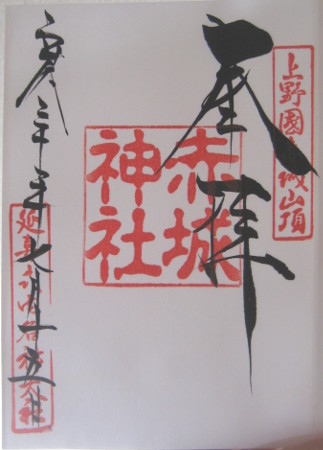 上野國赤城山頂
奉拝
赤城
神社
七月十五日
延喜式内名神大社